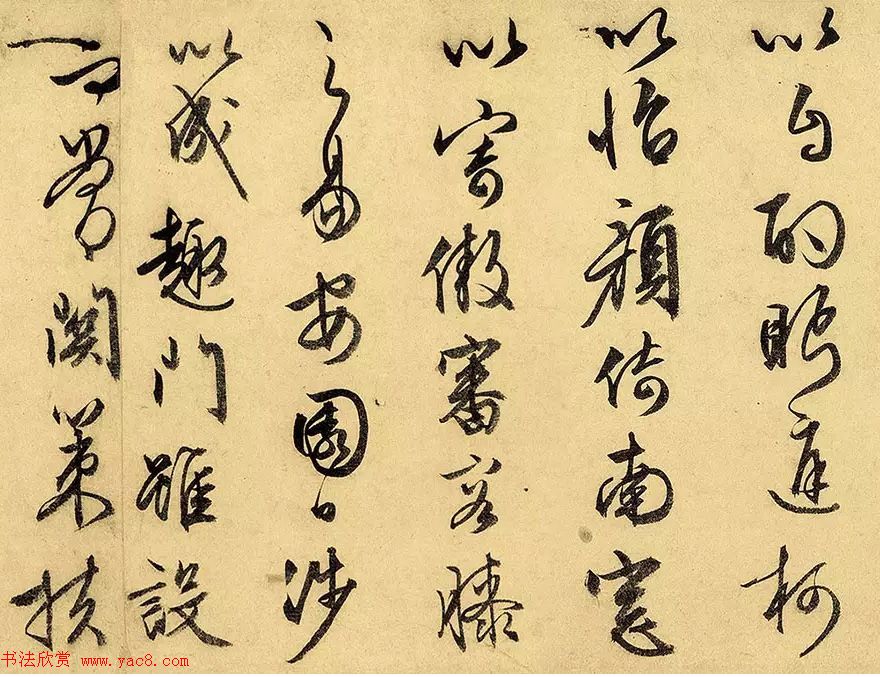 以自酌眄庭柯
以怡颜倚南窓
以寄傲審容膝
之易安園日涉
以成趣門雖設
而常関策扶
书法欣赏 www.yac8.com